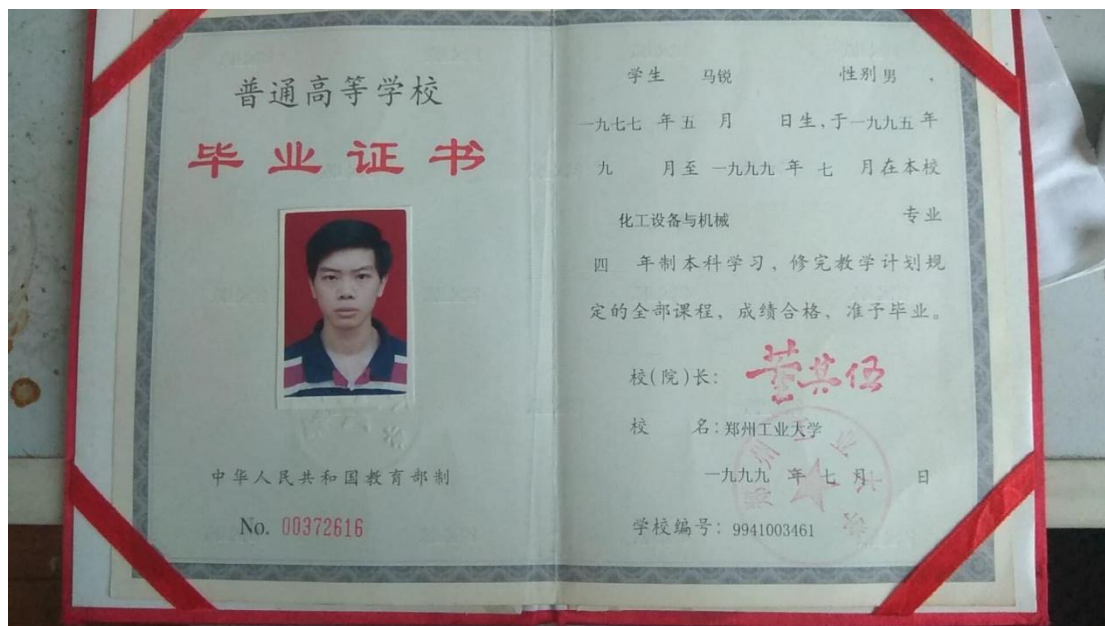 普通高等学校
毕业证书
中华人民共和国教育部制
No. 00372616
学生 马锐 性别 男 .
一九七七 年 五 月 日生,于 一九九五 年
九 月至 一九九九 年 七 月在本校
化工设备与机械 专业
四 年制本科学习，修完教学计划规
定的全部课程，成绩合格，准予毕业。
校(院)长: 董其伍
校 名: 郑州工业大学
一九九九 年 七 月 日
学校编号: 9941003461